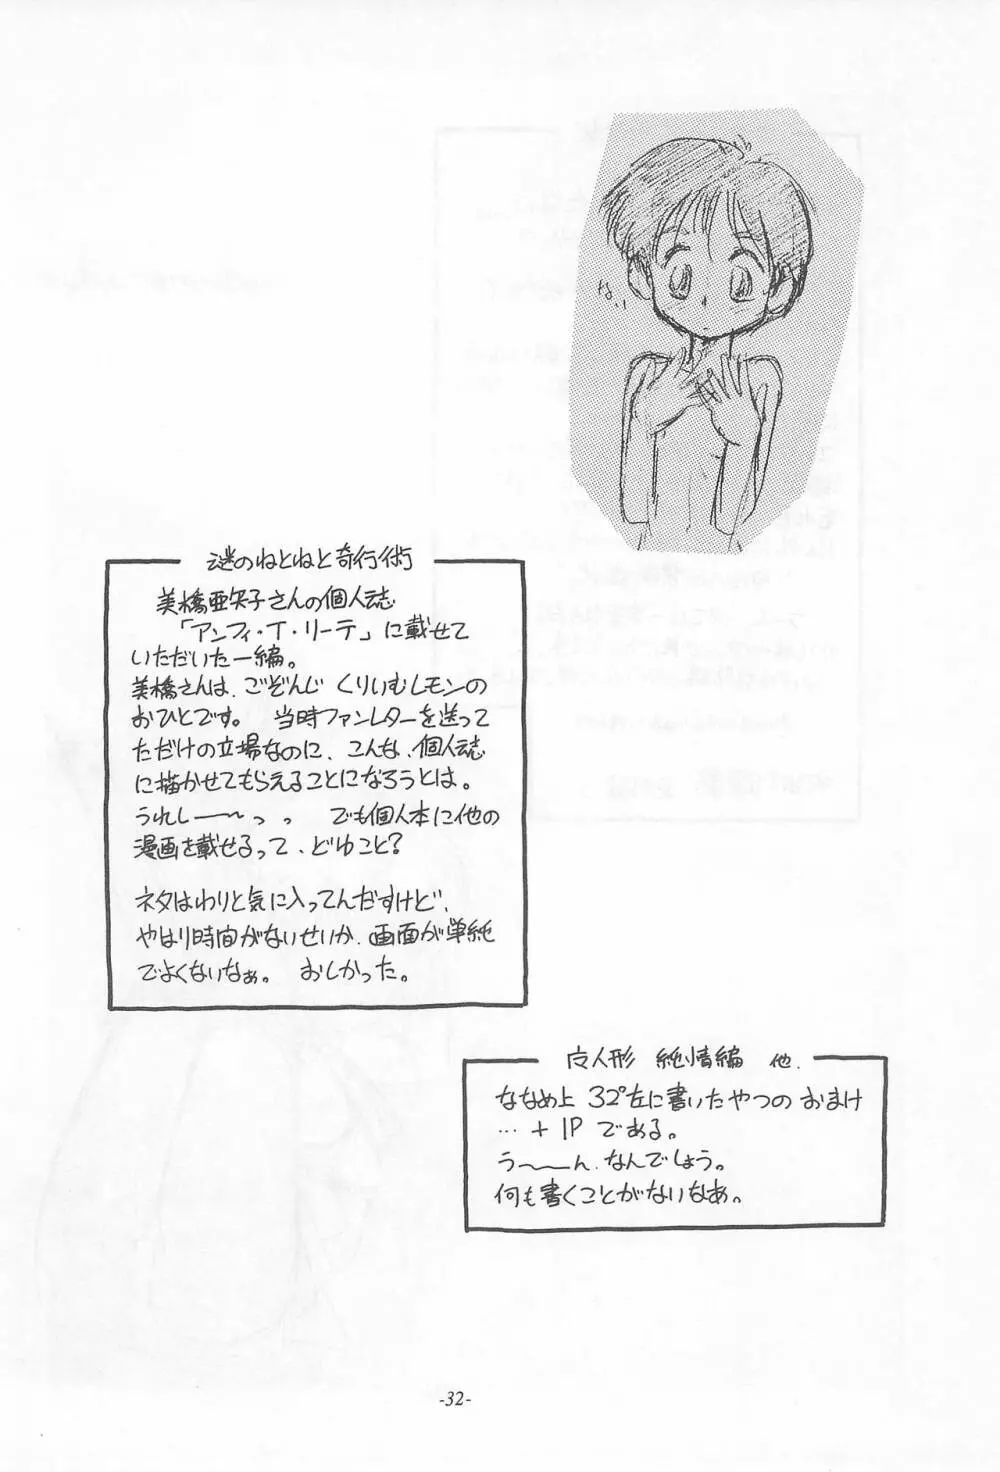 な、、
謎のねとねと奇行術
美橋亜矢子さんの個人誌
「アンフィ・T・リーテ」に載せて
いただいた一編。
美橋さんは、ごぞんじ くりいむレモンの
おひとです。 当時ファンレターを送って
ただけの立場なのに、こんな、個人誌
に描かせてもらえることになろうとは。
うれしー〜っっ でも個人本に他の
漫画を載せるって、どゆこと?
ネタはわりと気に入ってんだすけど、
やはり時間がないせいか、画面が単純
でよくないなぁ。 おしかった。
人形 純情編 他.
ななめ上 32°左に書いたやつの おまけ
…+1P である。
う〜ーん、なんでしょう。
何も書くことがないなあ。
-32-